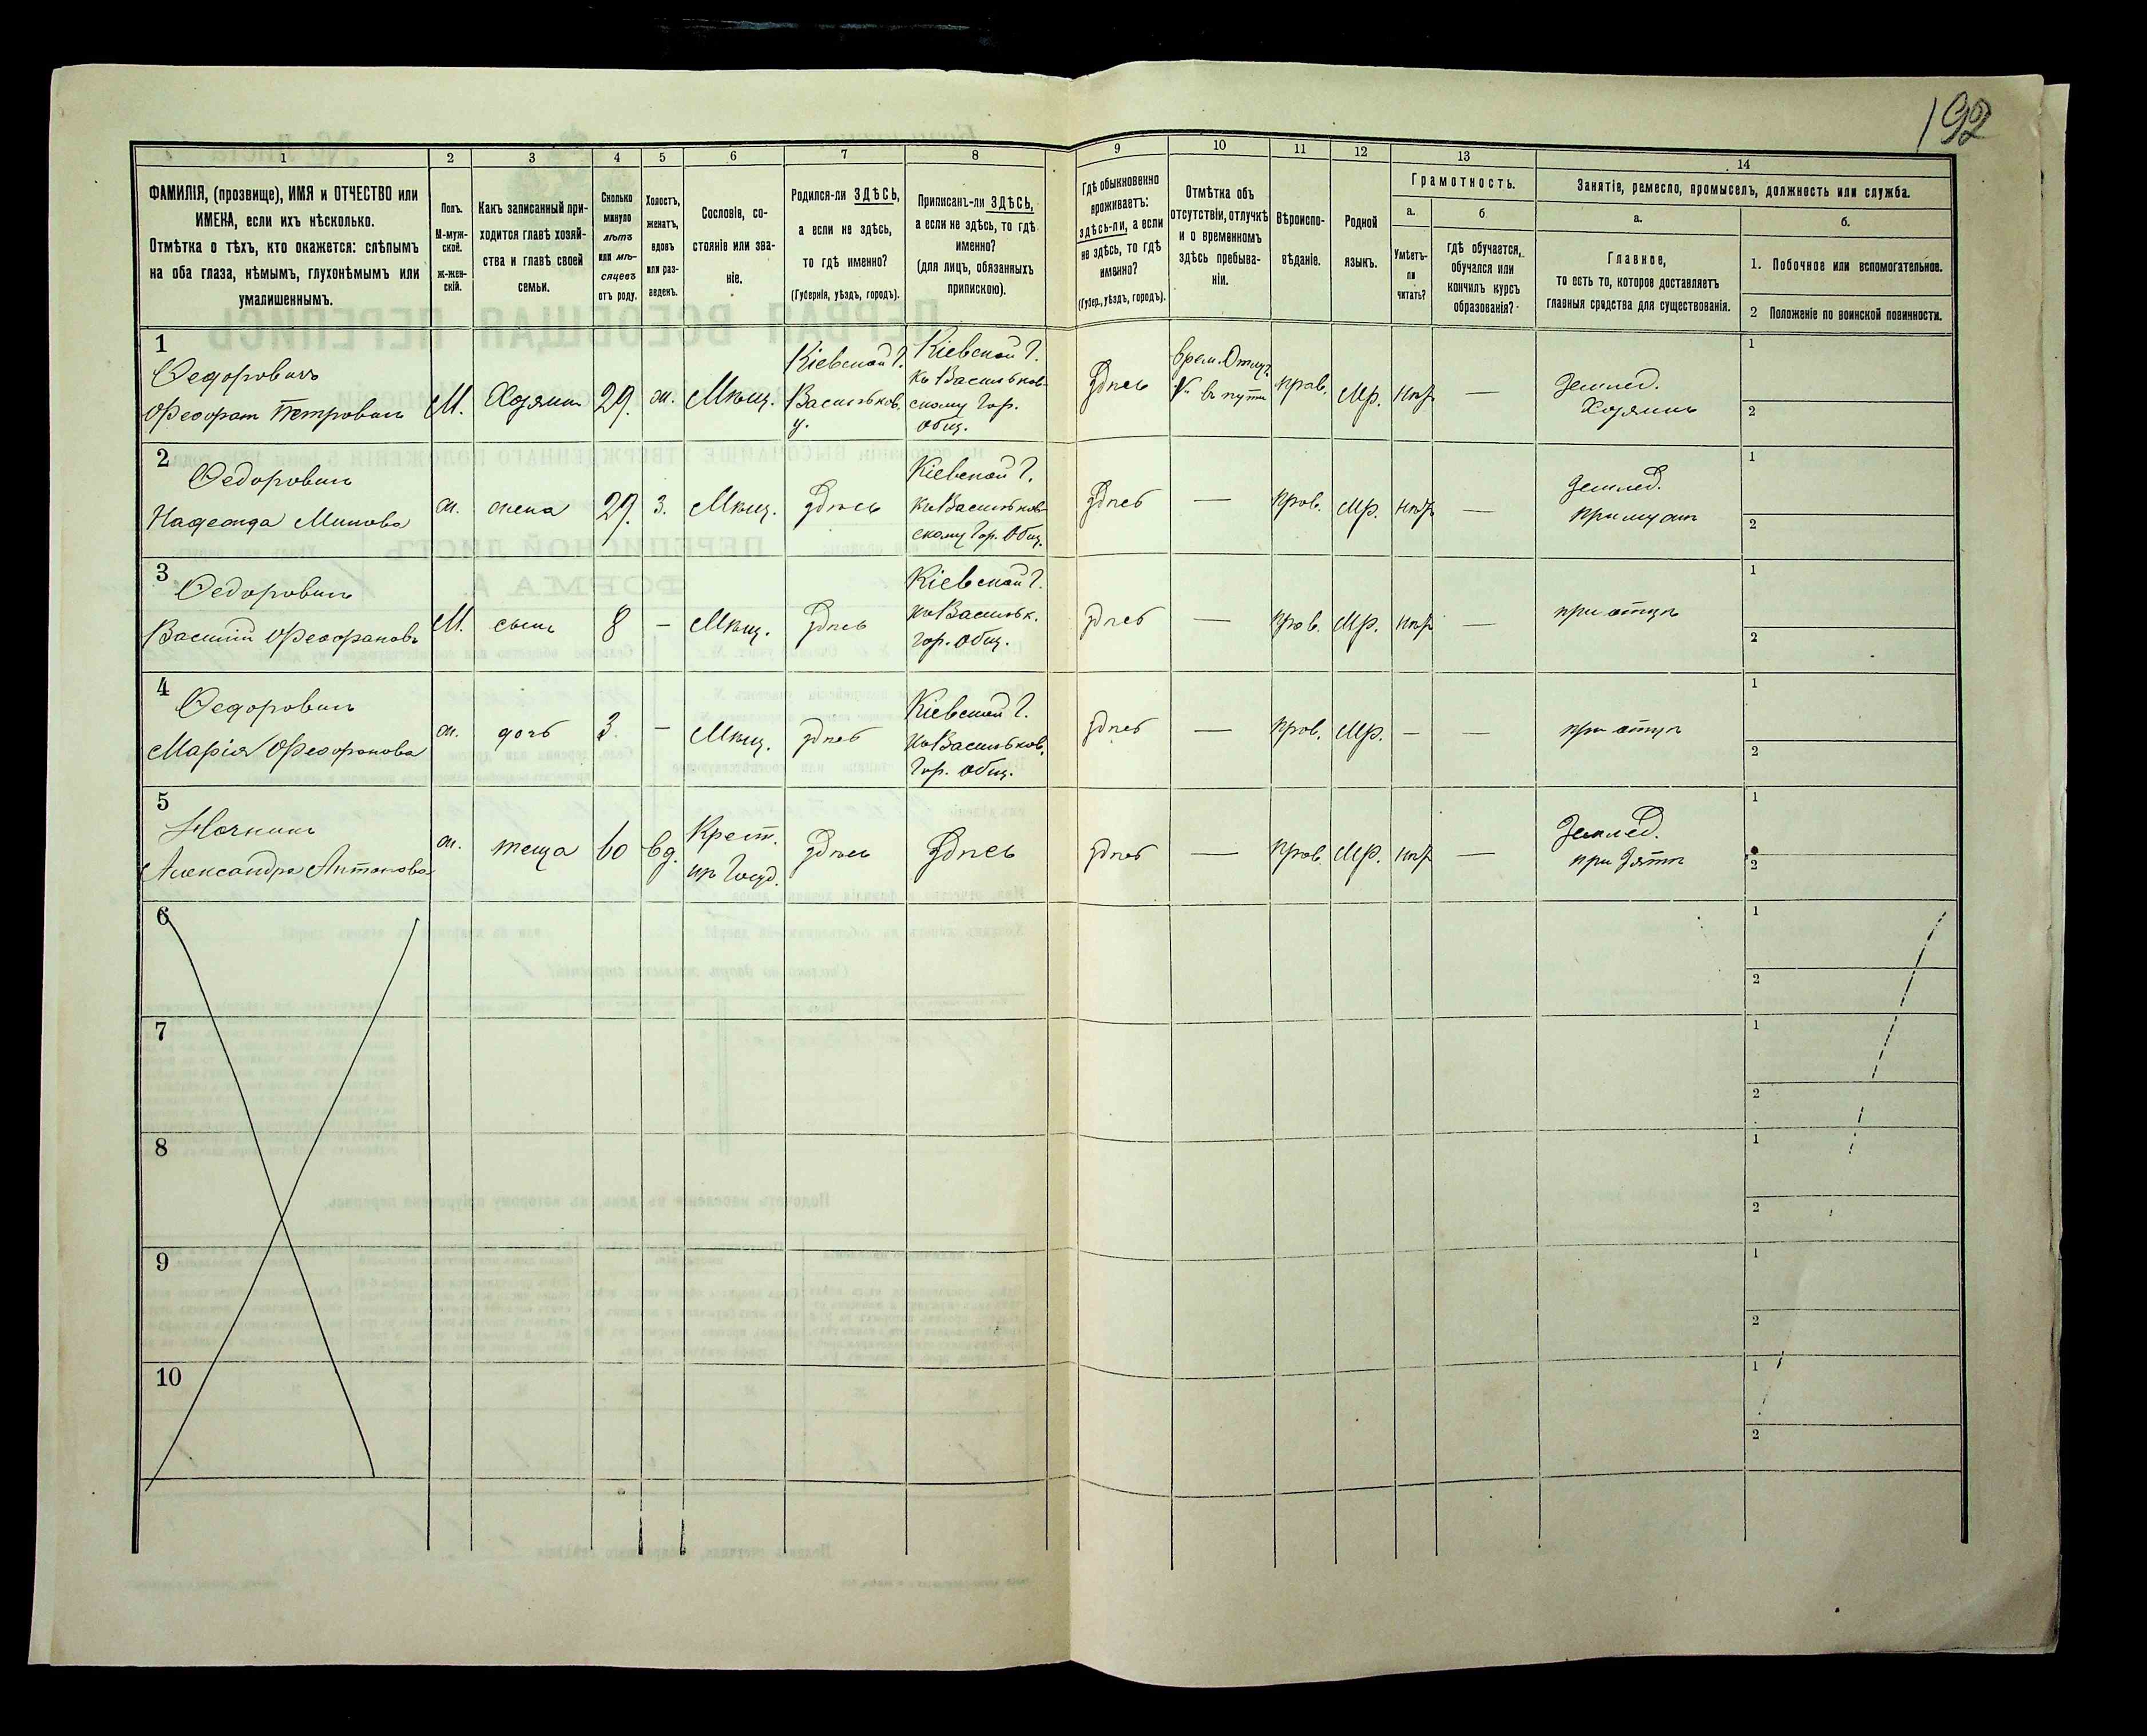 192
1
2
3
4
5
6
7
8
9
10
11
12
13
14
ФАМИЛІЯ, (прозвище), ИМЯ и ОТЧЕСТВО или
ИМЕНА, если ихъ нѣсколько.
Отмѣтка о тѣхъ, кто окажется: слѣпымъ
на оба глаза, нѣмымъ, глухонѣмымъ или
умалишеннымъ.
Полъ.
М-муж-
ской.
ж-жен-
скій.
Какъ записанный при-
ходится главѣ хозяй-
ства и главѣ своей
семьи.
Сколько
минуло
лѣтъ
или мѣ-
сяцевъ
отъ роду.
Холостъ,
женатъ,
вдовъ
или раз-
веденъ.
Сословіе, со-
стояніе или зва-
ніе.
Родился-ли ЗДѢСЬ,
а если не здѣсь,
то гдѣ именно?
(Губернія, уѣздъ, городъ).
Приписанъ-ли ЗДѢСЬ,
а если не здѣсь, то гдѣ
именно?
(для лицъ, обязанныхъ
припискою).
Гдѣ обыкновенно
проживаетъ:
здѣсь-ли, а если
не здѣсь, то гдѣ
именно?
(Губер., уѣздъ, городъ).
Отмѣтка объ
отсутствіи, отлучкѣ
и о временномъ
здѣсь пребыва-
ніи.
Вѣроиспо-
вѣданіе.
Родной
языкъ.
Грамотность.
а.
Умѣетъ-
ли
читать?
б
гдѣ обучается,
обучался или
кончилъ курсъ
образованія?
Занятіе, ремесло, промыселъ, должность или служба.
а.
Главное,
то есть то, которое доставляетъ
главныя средства для существованія.
б.
1. Побочное или вспомогательное.
2 Положеніе по воинской повинности.
1
Федоровичъ
Феофан Петровичъ
М.
Хозяинъ
29.
ж.
Мѣщ.
Кіевской Г.
Васильков.
у.
Кіевской Г.
Къ Васильков-
скому Гор.
Общ.
Здѣсь
врем. Отлуч.
въ пути
прав.
Мр.
нѣт
—
Землед.
Хозяинъ
1
2
2
Федоровичъ
Надежда Минова
ж.
жена
29.
з.
Мѣщ.
Здѣсь
Кіевской Г.
Къ Васильков-
скому Гор. Общ.
Здѣсь
—
прав.
Мр.
нѣт
—
Землед.
при мужѣ
1
2
3
Федоровичъ
Василий Феофановъ
М.
сынъ
8
—
Мѣщ.
Здѣсь
Кіевской Г.
Къ Васильк.
гор. Общ.
Здѣсь
—
прав.
Мр.
нѣт
—
при отцѣ
1
2
4
Федоровичъ
Марія Феофанова
ж.
дочь
3.
—
Мѣщ.
Здѣсь
Кіевской Г.
Къ Васильков.
Гор. Общ.
Здѣсь
—
прав.
Мр.
—
—
при отцѣ
1
2
5
Александра Антонова
ж.
теща
60
вд.
Крест.
Здѣсь
Здѣсь
Здѣсь
—
прав.
Мр.
нѣт
—
Землед.
при Зятѣ
1
2
6
1
2
7
1
2
8
1
2
9
1
2
10
1
2